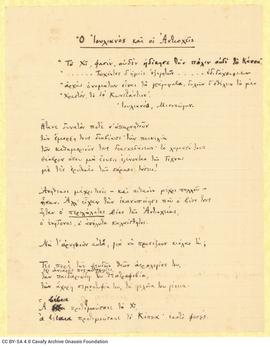 Ὁ Ἰουλιανὸς καὶ οἱ Ἀντιοχεῖς
"Τὸ Χῖ, φασίν, οὐδὲν ἠδίκησε τὴν πόλιν οὐδὲ τὸ Κάππα"
Τυχόντες δ' ἡμεῖς ἐξηγητῶν ἐδιδάχθημεν
ἀρχὰς ὀνομάτων εἶναι τὰ γράμματα, δηλοῦν δ' ἐθέλειν τὸ μὲν
Χριστόν, τὸ δὲ Κωνστάντιον".
Ἰουλιανοῦ, Μισοπώγων.
Ἤτανε δυνατὸν ποτὲ ν' ἀπαρνηθοῦν
τὴν ἔμορφή τους διαβίωσι· τὴν ποικιλία
τῶν καθημερινῶν τους διασκεδάσεων· τὸ λαμπρό τους
θέατρον ὅπου μιὰ ἕνωσις ἐγένονταν τῆς Τέχνης
μὲ τὲς ἐρωτικὲς τῆς σάρκας τάσεις!
Ἀνήθικοι μέχρι τινὸς – καὶ πιθανὸν μέχρι πολλοῦ –
ἦσαν. Ἀλλ' εἶχαν τὴν ἱκανοποίησι ποὺ ὁ βίος τους
ἦταν ὁ περιλάλητος βίος τῆς Ἀντιοχείας,
ὁ ἐνήδονος, ὁ ἀπόλυτα καλαίσθητος.
Νὰ τ' ἀρνηθοῦν αὐτά, γιὰ νὰ προσέξουν κιόλας τί;
Τὲς περὶ τῶν ψευδῶν θεῶν ἀερολογίες του,
τὲς ἀνιαρὲς περιαυτολογίες·
τὴν παιδαριώδη του θεατροφοβία·
τὴν ἄχαρι σεμνοτυφία του· τὰ γελοῖα του γένεια.
Ἆ βέβαια προτιμοῦσανε τὸ Χῖ,
ἆ βέβαια προτιμοῦσανε τὸ Κάππα· ἑκατὸ φορές.
CC BY-SA 4.0 Cavafy Archive Onassis Foundation